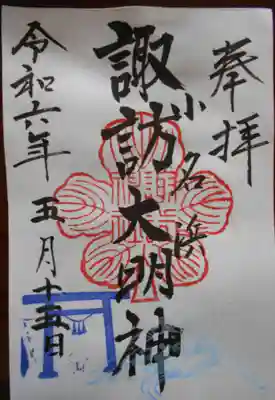 奉拝
小名浜
諏訪大明神
令和六年 五月十五日